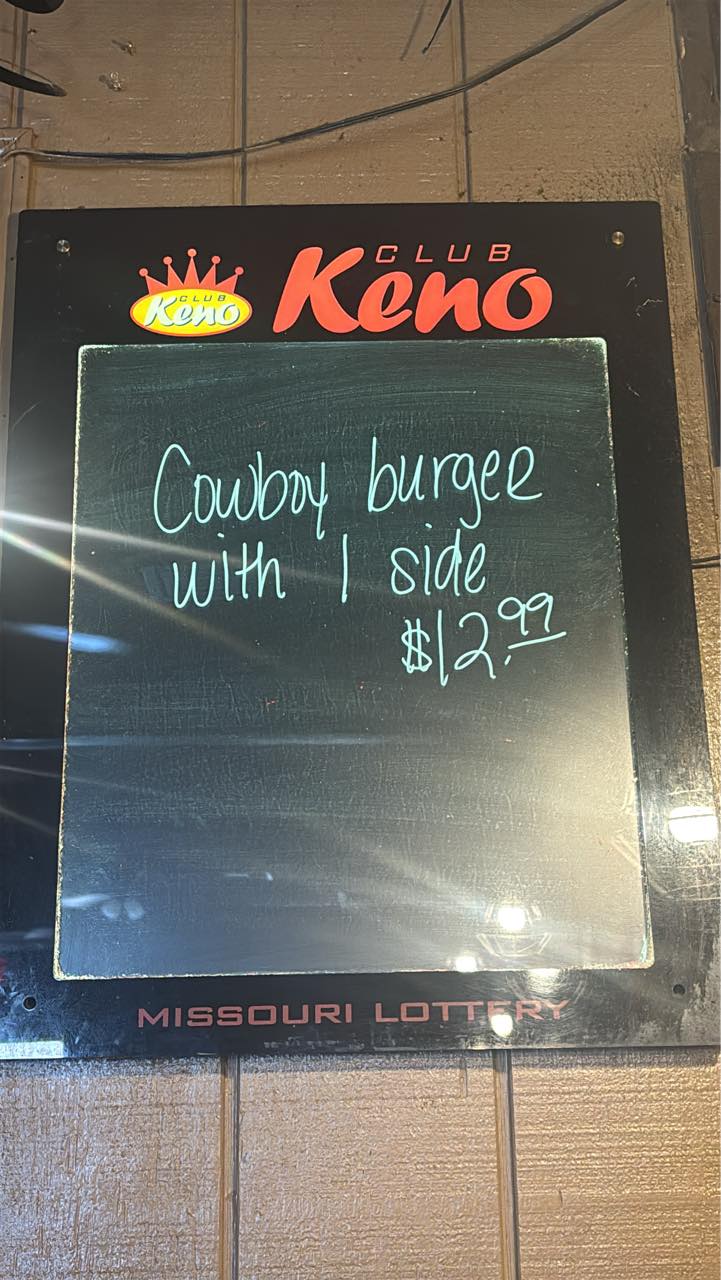 CLUB
Keno
CLUB
Keno
Cowboy burger
with 1 side
$12.99
MISSOURI LOTTERY